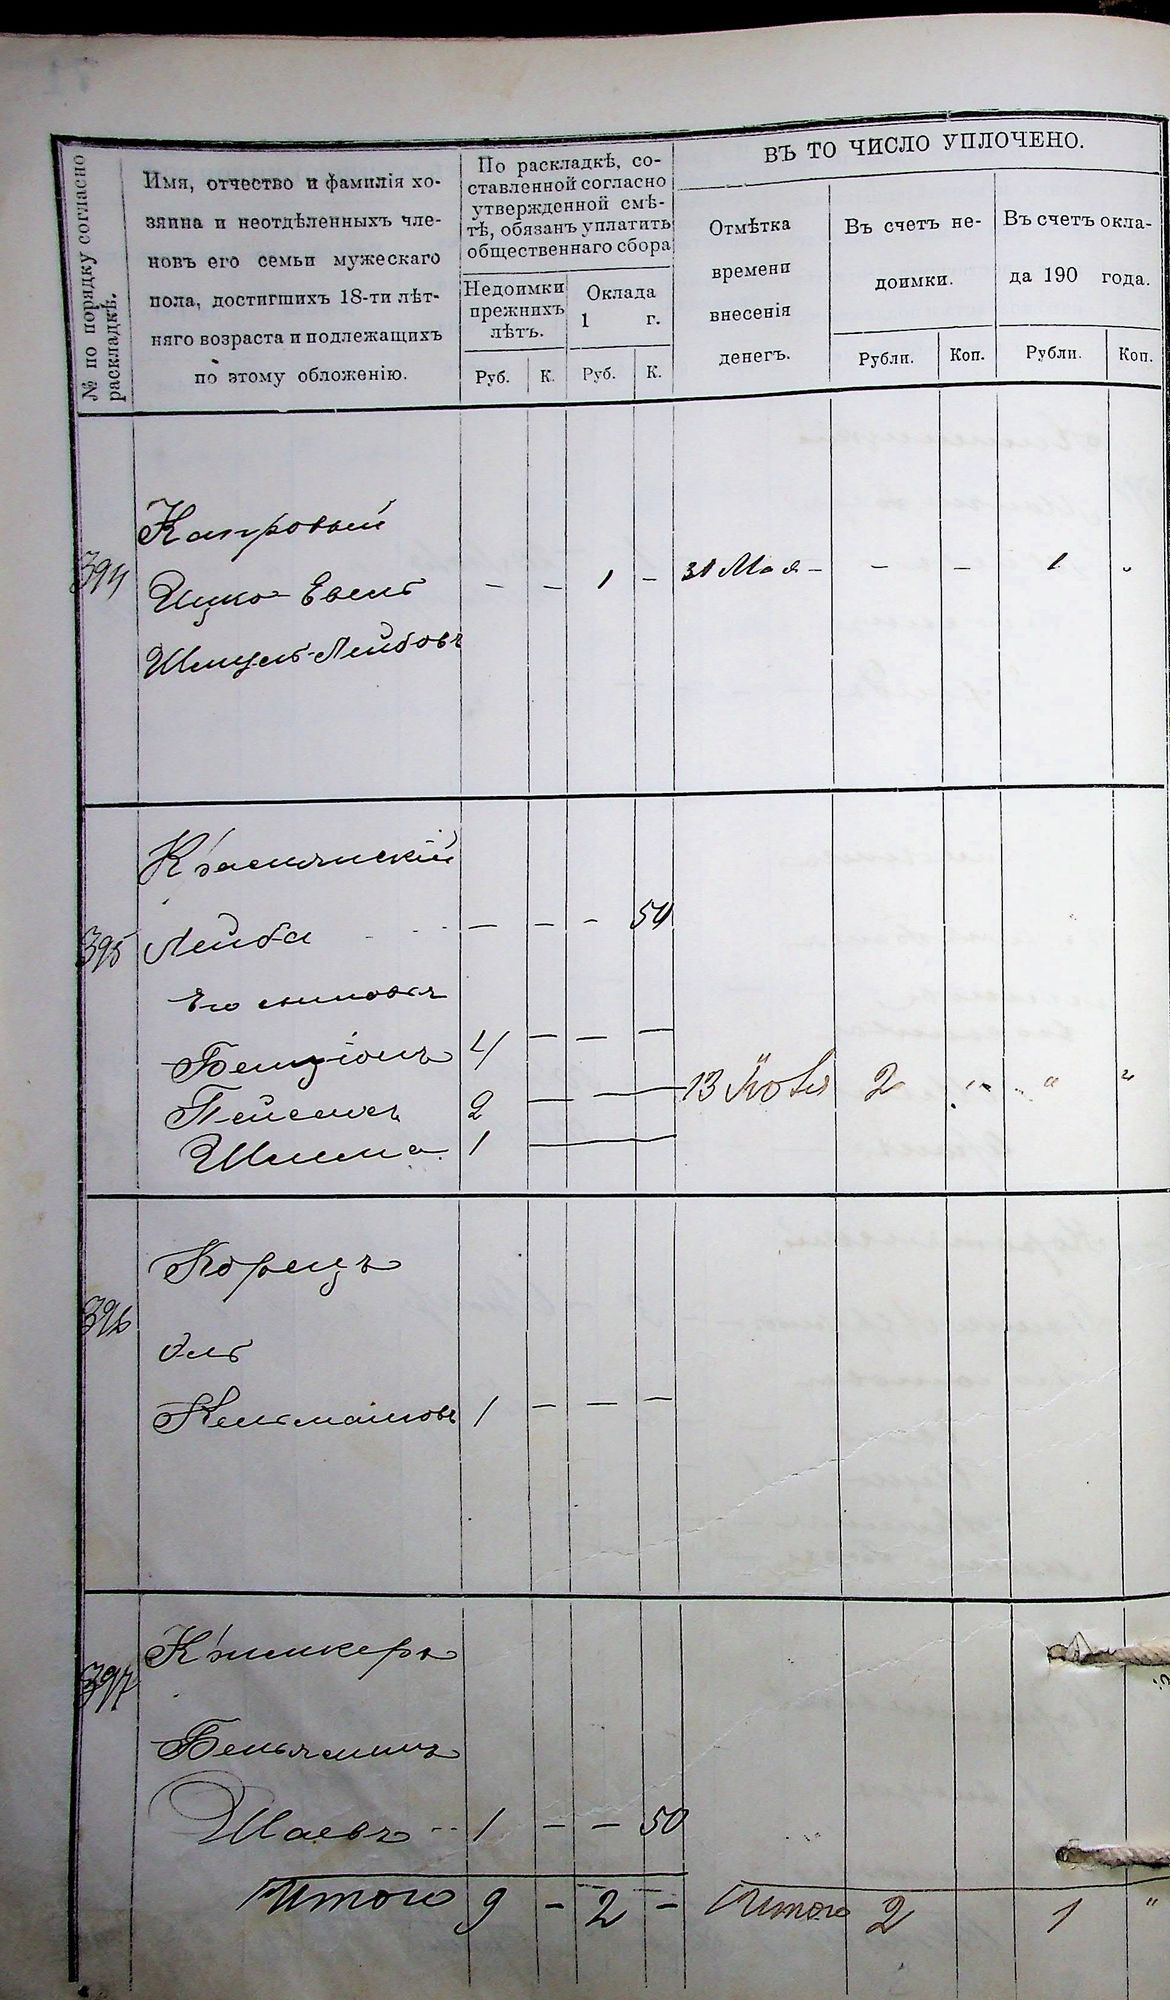 № по порядку согласно раскладкѣ.
Имя, отчество и фамилія хо-
зяина и неотдѣленныхъ чле-
новъ его семьи мужескаго
пола, достигшихъ 18-ти лѣт-
няго возраста и подлежащихъ
по этому обложенію.
По раскладкѣ, со-
ставленной согласно
утвержденной смѣ-
тѣ, обязанъ уплатить
общественнаго сбора
Недоимки
прежнихъ
лѣтъ.
Оклада
1 г.
Руб. К. Руб. К.
ВЪ ТО ЧИСЛО УПЛОЧЕНО.
Отмѣтка
времени
внесенія
денегъ.
Въ счетъ не-
доимки.
Въ счетъ окла-
да 190 года.
Рубли. Коп. Рубли. Коп.
Капровый
394 Ицко-Евель – – 1 – 31 Мая – – – 1 "
Шмуль-Лейбовъ
Краснянскій
395 Лейба – – – 50
Его сыновья
Бенціонъ 4 – – –
Пейсахъ 2 – – 13 Ноября 2 " " "
Шлема 1 –
Корецъ
396
Кельмановъ 1 – – –
397
Беньяминъ
Шаевъ 1 – – 50
Итого 9 – 2 – Итого 2 1 "